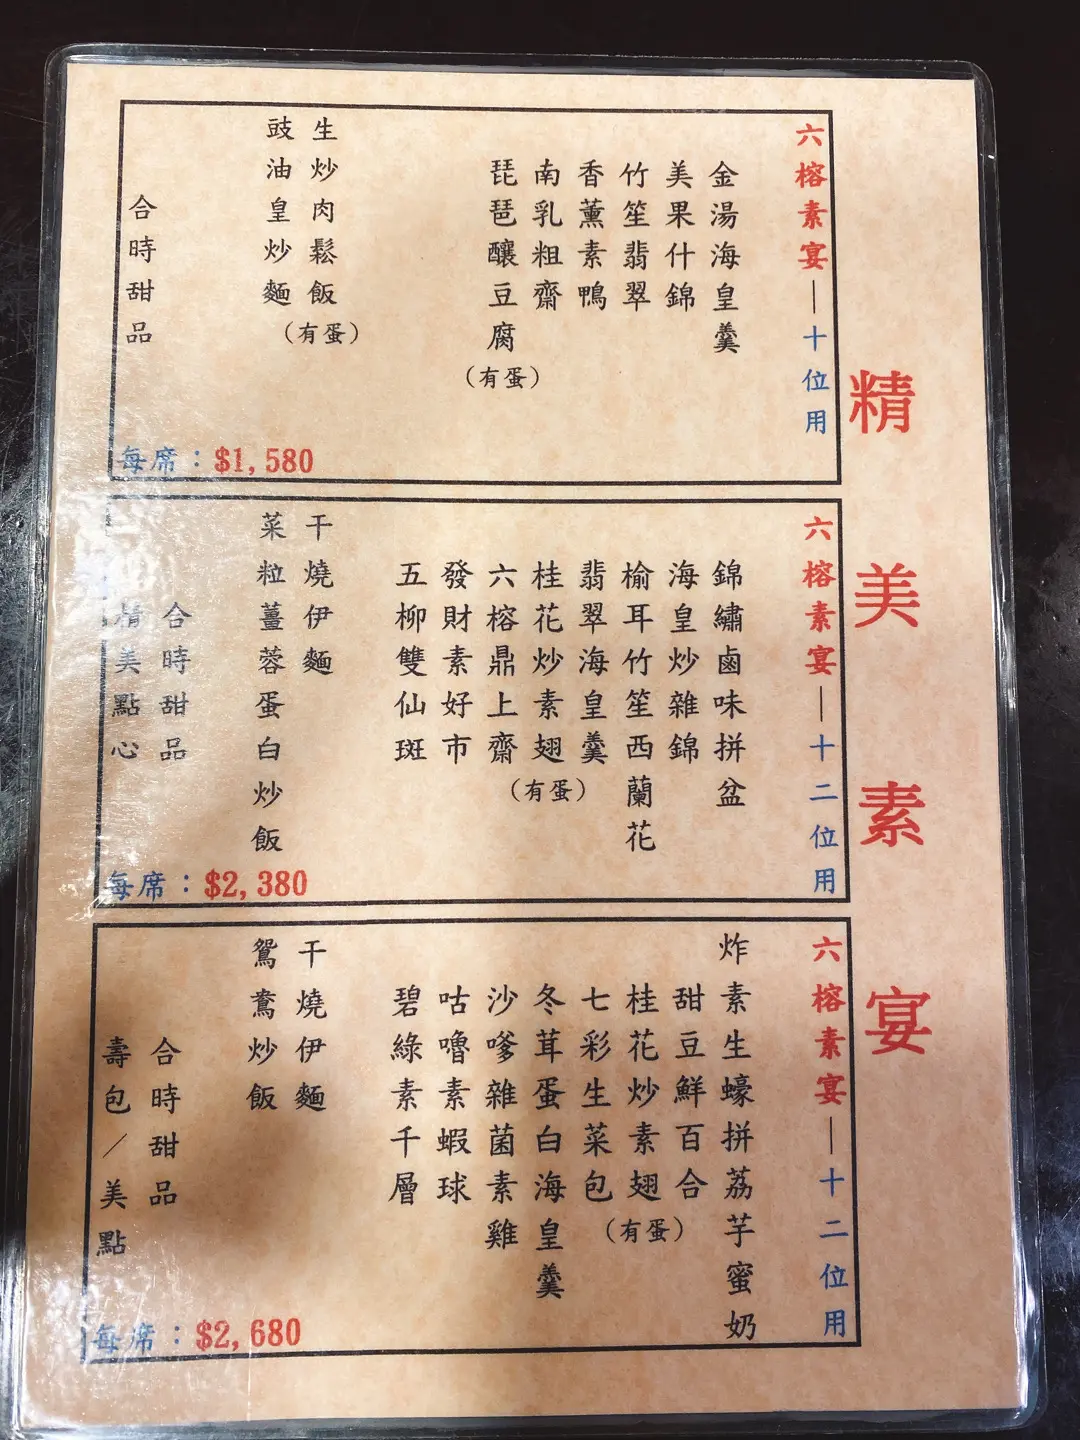 精美素宴
六榕素宴—十位用
金湯海皇羹
美果什錦
竹笙翡翠
香薰素鴨
南乳粗齋
琵琶釀豆腐
(有蛋)
生炒肉鬆飯
(有蛋)
豉油皇炒麵
合時甜品
每席：$1,580
六榕素宴—十二位用
錦繡鹵味拼盆
海皇炒雜錦
榆耳竹笙西蘭花
翡翠海皇羹
桂花炒素翅
(有蛋)
六榕鼎上齋
發財素好市
五柳雙仙斑
干燒伊麵
菜粒薑蓉蛋白炒飯
合時甜品
精美點心
每席：$2,380
六榕素宴—十二位用
炸素生蠔拼荔芋蜜奶
甜豆鮮百合
桂花炒素翅
(有蛋)
七彩生菜包
冬茸蛋白海皇羹
沙嗲雜菌素雞
咕嚕素蝦球
碧綠素千層
干燒伊麵
鴛鴦炒飯
合時甜品
壽包／美點
每席：$2,680